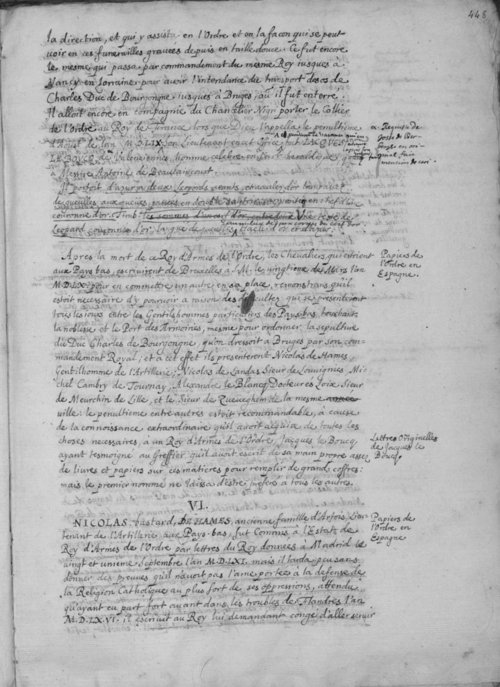 448
la direction, et qui y assista en l'Ordre et en la façon qui se peut
voir en ces funerailles gravees depuis en taille douce. Ce fut encore
le mesme qui passa par commandement du mesme Roy iusques à
Nancy en Lorraine pour avoir l'intendance du transport des os de
Charles Duc de Bourgogne iusques à Bruges, où il fut enterré.
Il alloit encore en compagnie du Chancelier Nigri porter le Collier
de l'Ordre au Roy de France, lors que Dieu l'appella le penultieme
d'Aoust de l'an M.D.LIX.
LE BOUCQ de Valenciennes, homme
à Messire Antoine de Beaulaincourt.
Il portoit d'azur
couronne d'or. Timbre
Leopard couronné d'or
a. Requise de
Apres la mort de ce Roy d'Armes de l'Ordre, les Chevaliers qui estoient
aux Pays bas, escrivirent de Bruxelles à S.M. le vingtieme de Mars l'an
M.D.LX. pour en commettre un autre en sa place, remonstrans qu'il
estoit necessaire d'y pourveoir a raison des disputes qui se presentoient
tous les iours entre les Gentilshommes particuliers des Pays bas, touchant
la noblesse et le Port des Armoiries, mesme pour ordonner la sepulture
du Duc Charles de Bourgongne, qu'on dressoit a Bruges par son com-
mandement Royal; et à cet effet ils presenterent Nicolas de Hames,
Gentilhomme de l'Artillerie, Nicolas de Landas Sieur de Louvignies, Mi-
chel Cambry de Tournay, Alexandre le Blancq Docteur es Loix, Sieur
de Meurchin de Lille, et le Sieur de Queveghem de la mesme
ville: le penultieme entre autres estoit recommandable, à cause
de la connoissance extraordinaire qu'il avoit acquise de toutes les
choses necessaires, à un Roy d'Armes de l'Ordre, Jacques le Boucq
ayant tesmoigné au Greffier qu'il avoit escrit de sa main propre assez
de livres et papiers sur ces matieres pour remplir de grands coffres:
mais le premier nommé ne laissa d'estre preferé à tous les autres.
Papiers de
l'Ordre en
Espagne.
Lettres Originelles
de Jacques le
Boucq.
VI.
NICOLAS, bastard, DE HAMES, ancienne famille d'Artois, Lieu-
tenant de l'Artillerie aux Pays-bas, fut commis à l'Estat de
Roy d'Armes de l'Ordre par lettres du Roy données à Madrid le
vingt et unieme Septembre l'an M.D.LXI. mais il tarda peu sans
donner des preuves qu'il n'avoit pas l'ame portée à la defense de
la Religion Catholique au plus fort de ses oppressions, attendu
qu'ayant eu part fort avant dans les troubles de Flandres l'an
M.D.LXVI. il escrivit au Roy lui demandant congé d'aller servir
Papiers de
l'Ordre en
Espagne